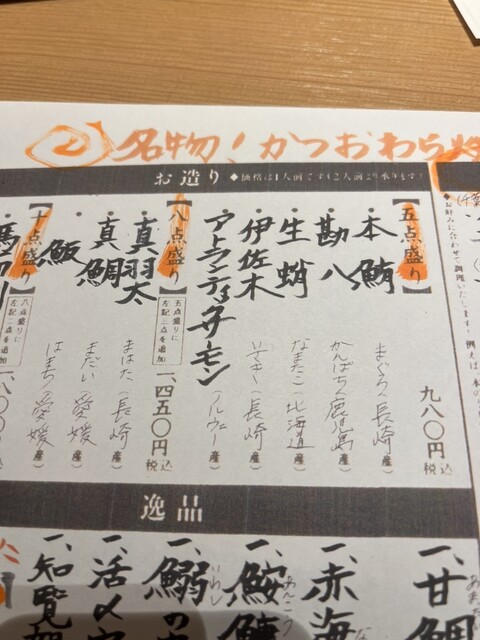 ② 名物！かつおわら焼
お造り ◆価格は1人前です(2人前より承ります)
【五点盛り】 九八〇円 税込
・本鮪 まぐろ（長崎産）
・勘八 かんぱち（鹿児島産）
・生蛸 なまたこ（北海道産）
・伊佐木 いさき（長崎産）
・アトランティックサーモン（ノルウェー産）
【八点盛り】 五点盛りに左記三点を追加 一、四五〇円 税込
・真羽太 まはた（長崎産）
・真鯛 まだい（愛媛産）
・魬 はまち（愛媛産）
【十点盛り】 八点盛りに左記二点を追加 一、八〇〇
◆お好みに合わせて調理いたします！例えば
逸品
一、甘鯛
一、赤海
一、鮟鱇 あんこう
一、鰯の いわし
一、活〆穴
一、知覧